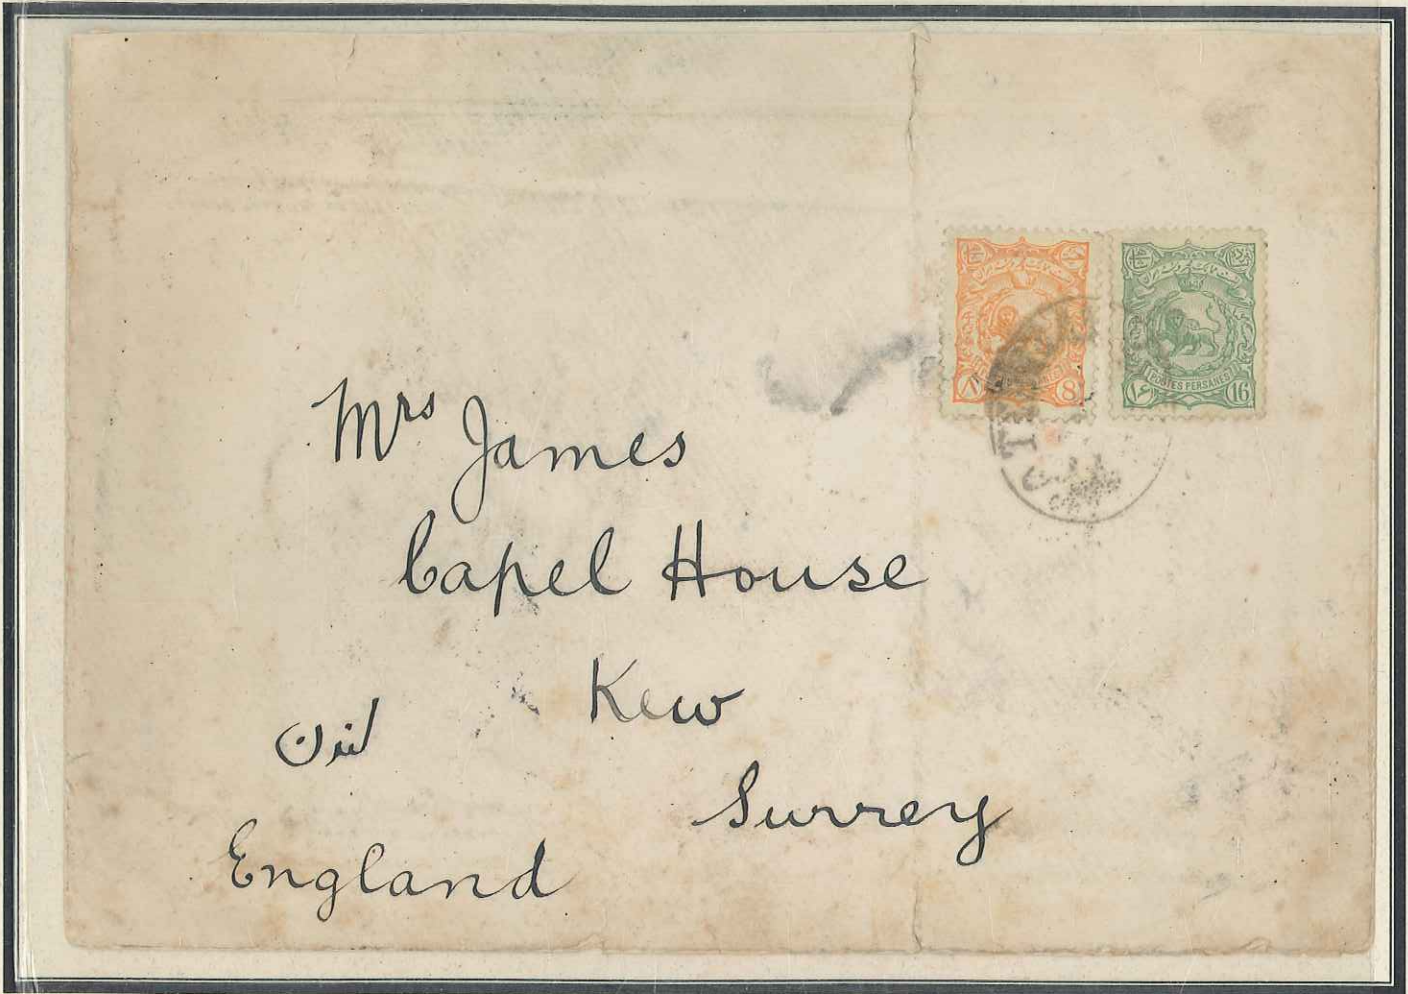 8
POSTES PERSANES
16
Mrs James
Capel House
Kew
Surrey
لندن
England